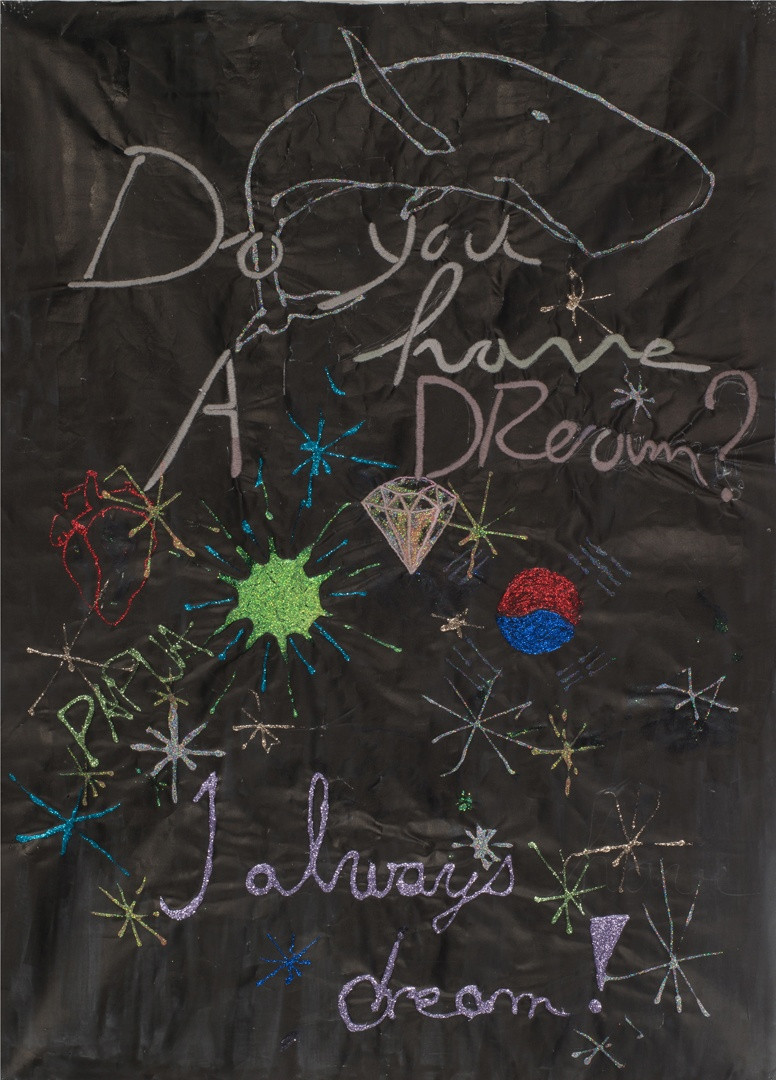 Do you
have
A DReam?
PAPUA
I always
dream!